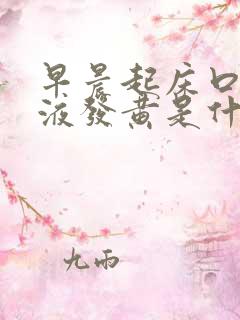 早晨起床口
液發黃是什
九雨